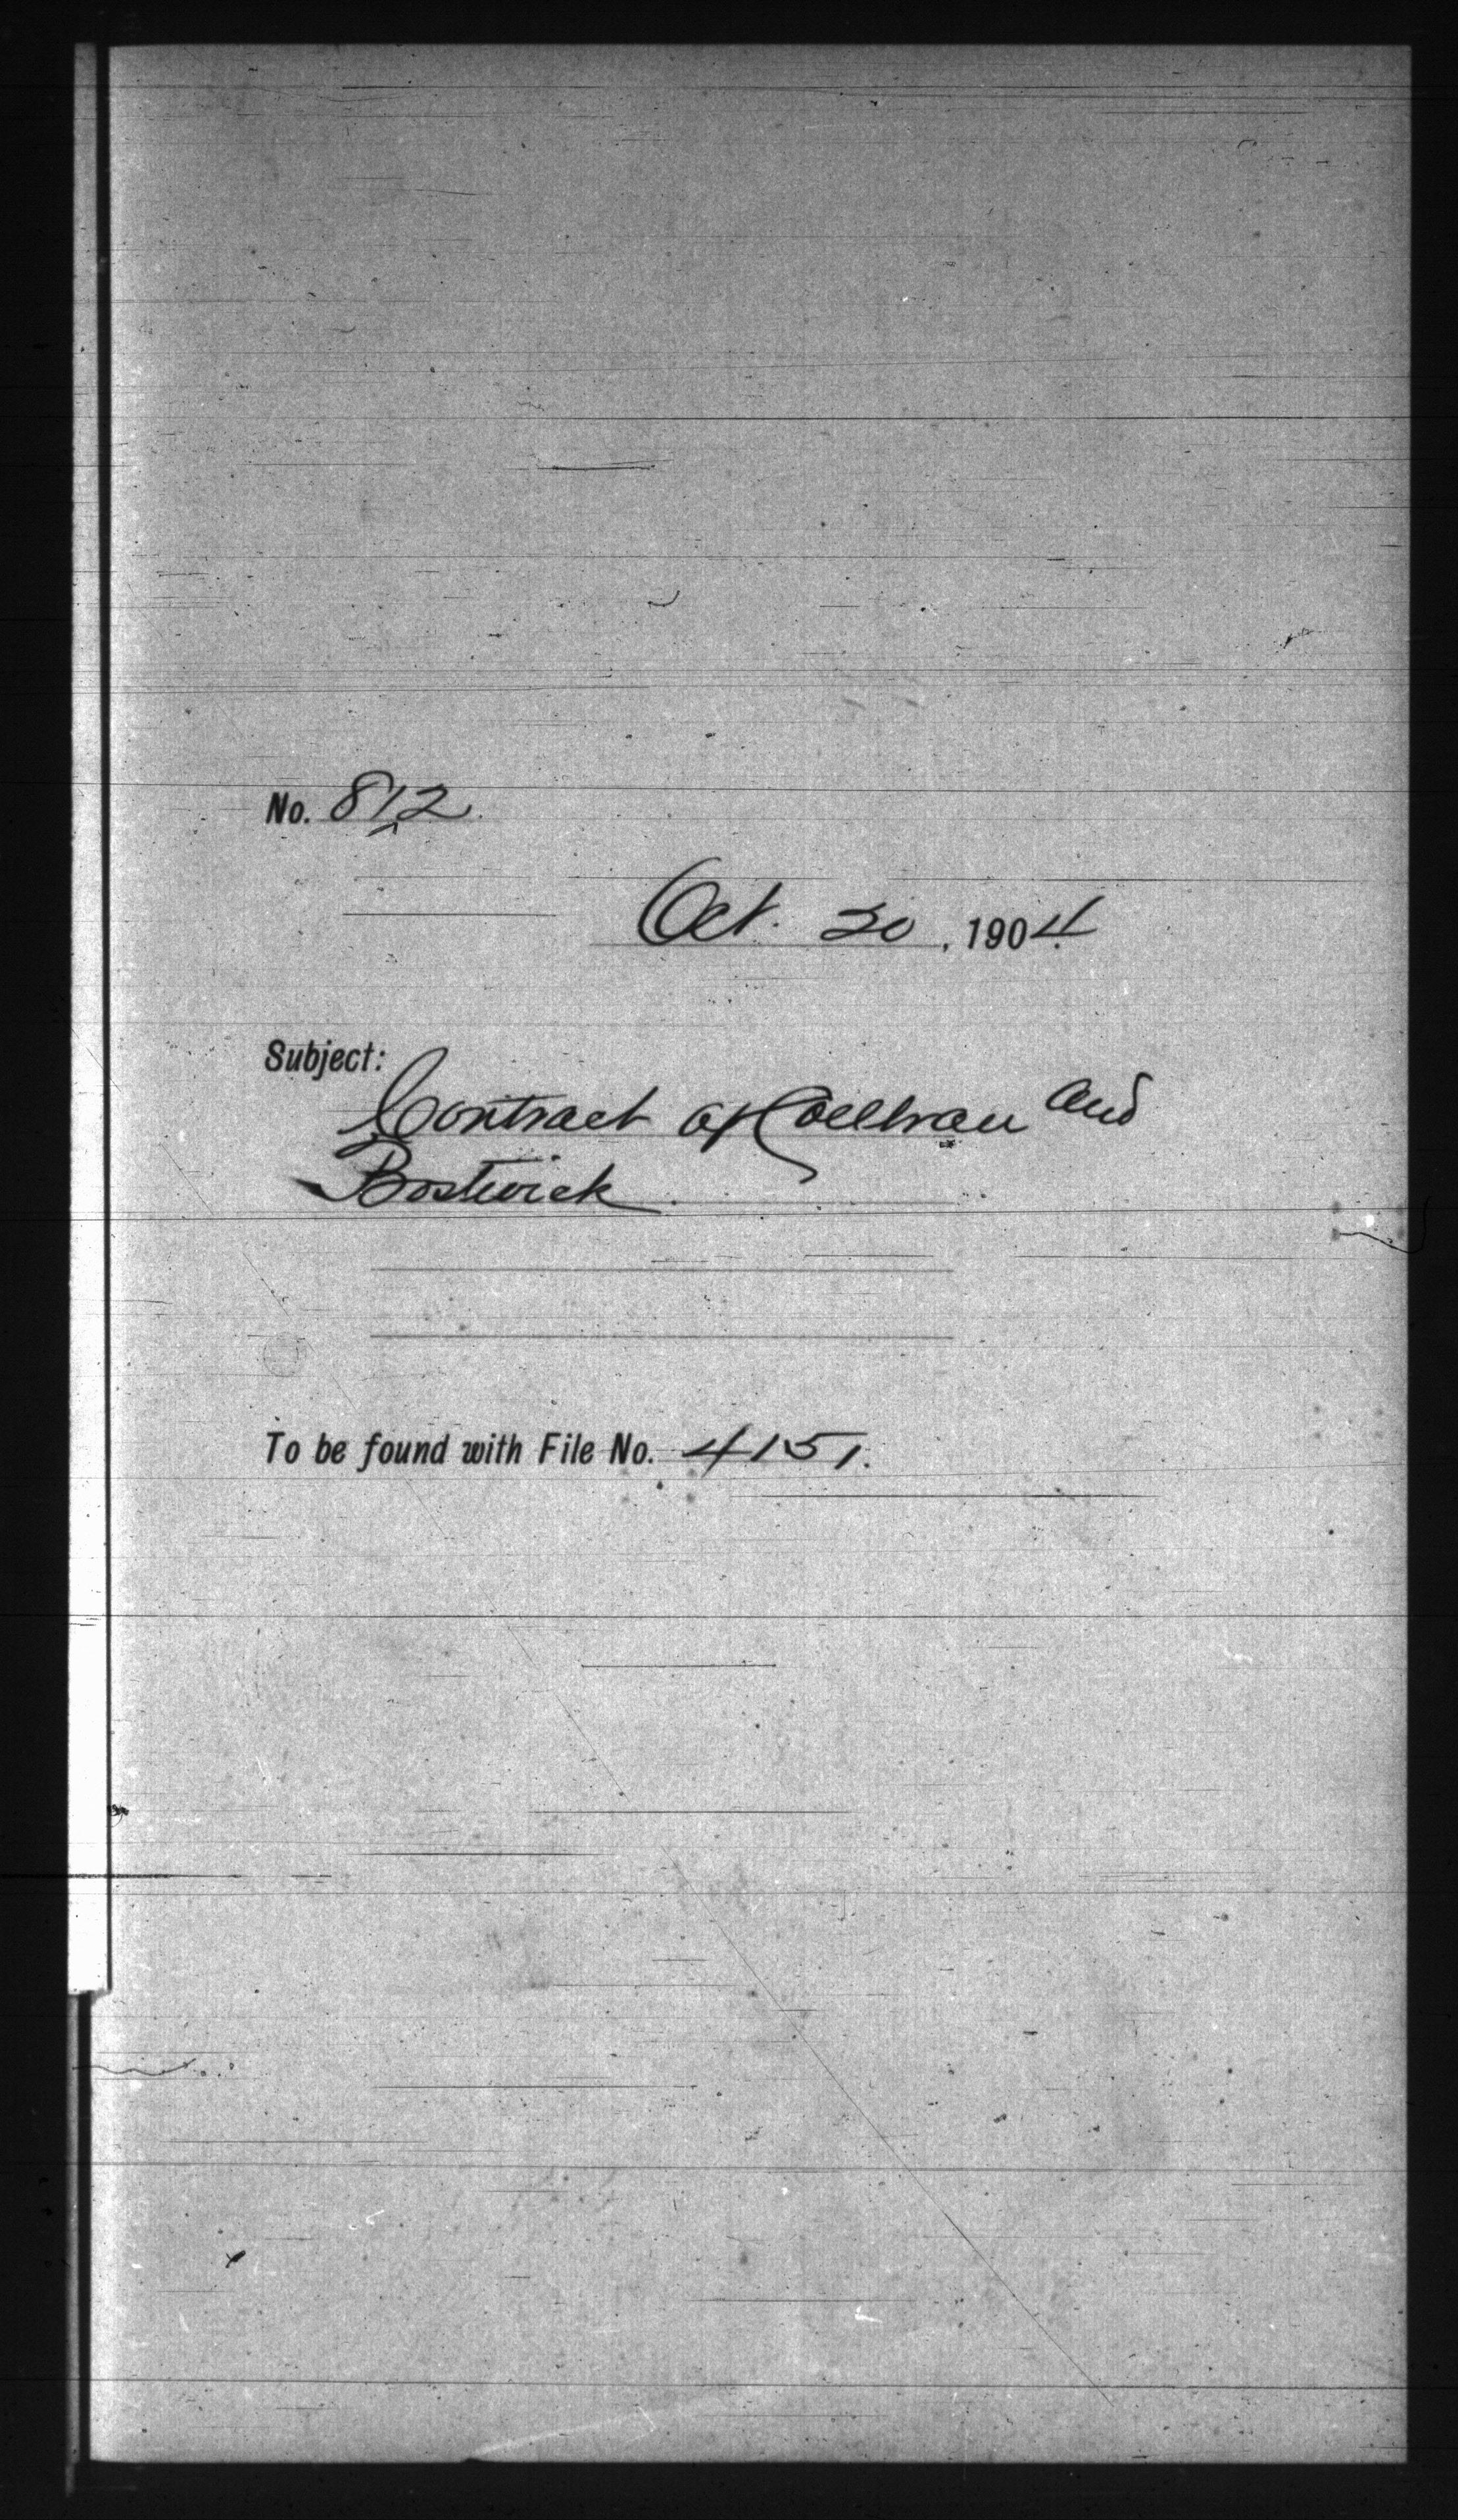 No. 812.
Oct. 20, 1904.
Subject:
Contract of Collbran and
Bostwick.
To be found with File No. 4151.